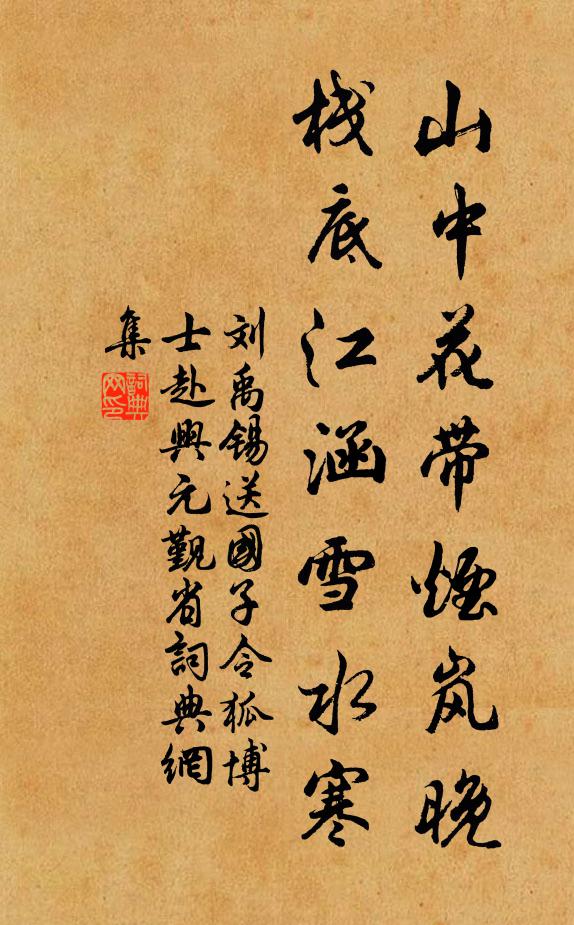 山中花带煙岚晚
栈底江涵雪水寒
刘禹锡送國子令狐博
士赴興元覲省詞典網
集
詞典
网印